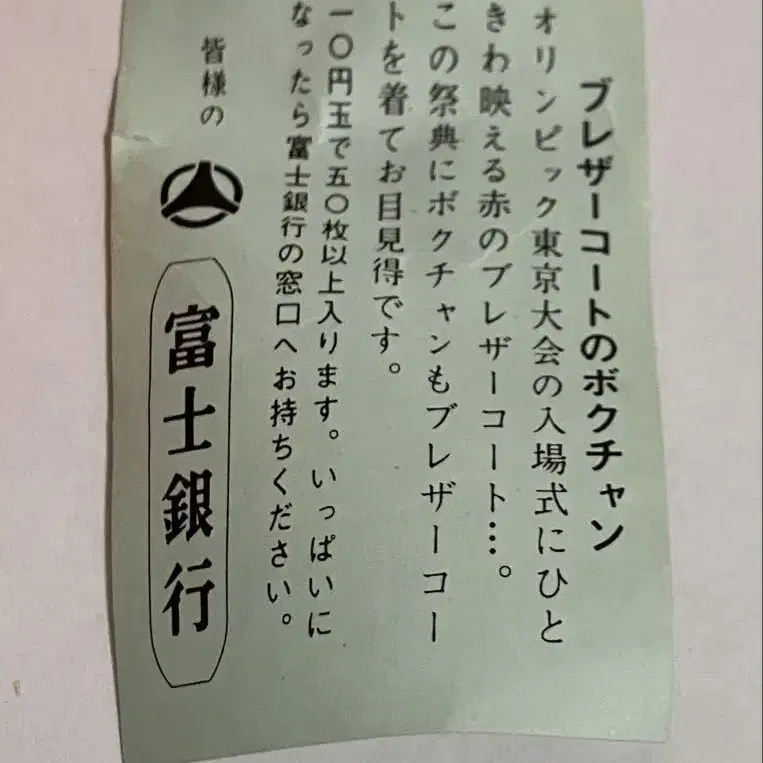 ブレザーコートのボクチャン
オリンピック東京大会の入場式にひと
きわ映える赤のブレザーコート…。
この祭典にボクチャンもブレザーコー
トを着てお目見得です。
一〇円玉で五〇枚以上入ります。いっぱいに
なったら富士銀行の窓口へお持ちください。
皆様の
富士銀行